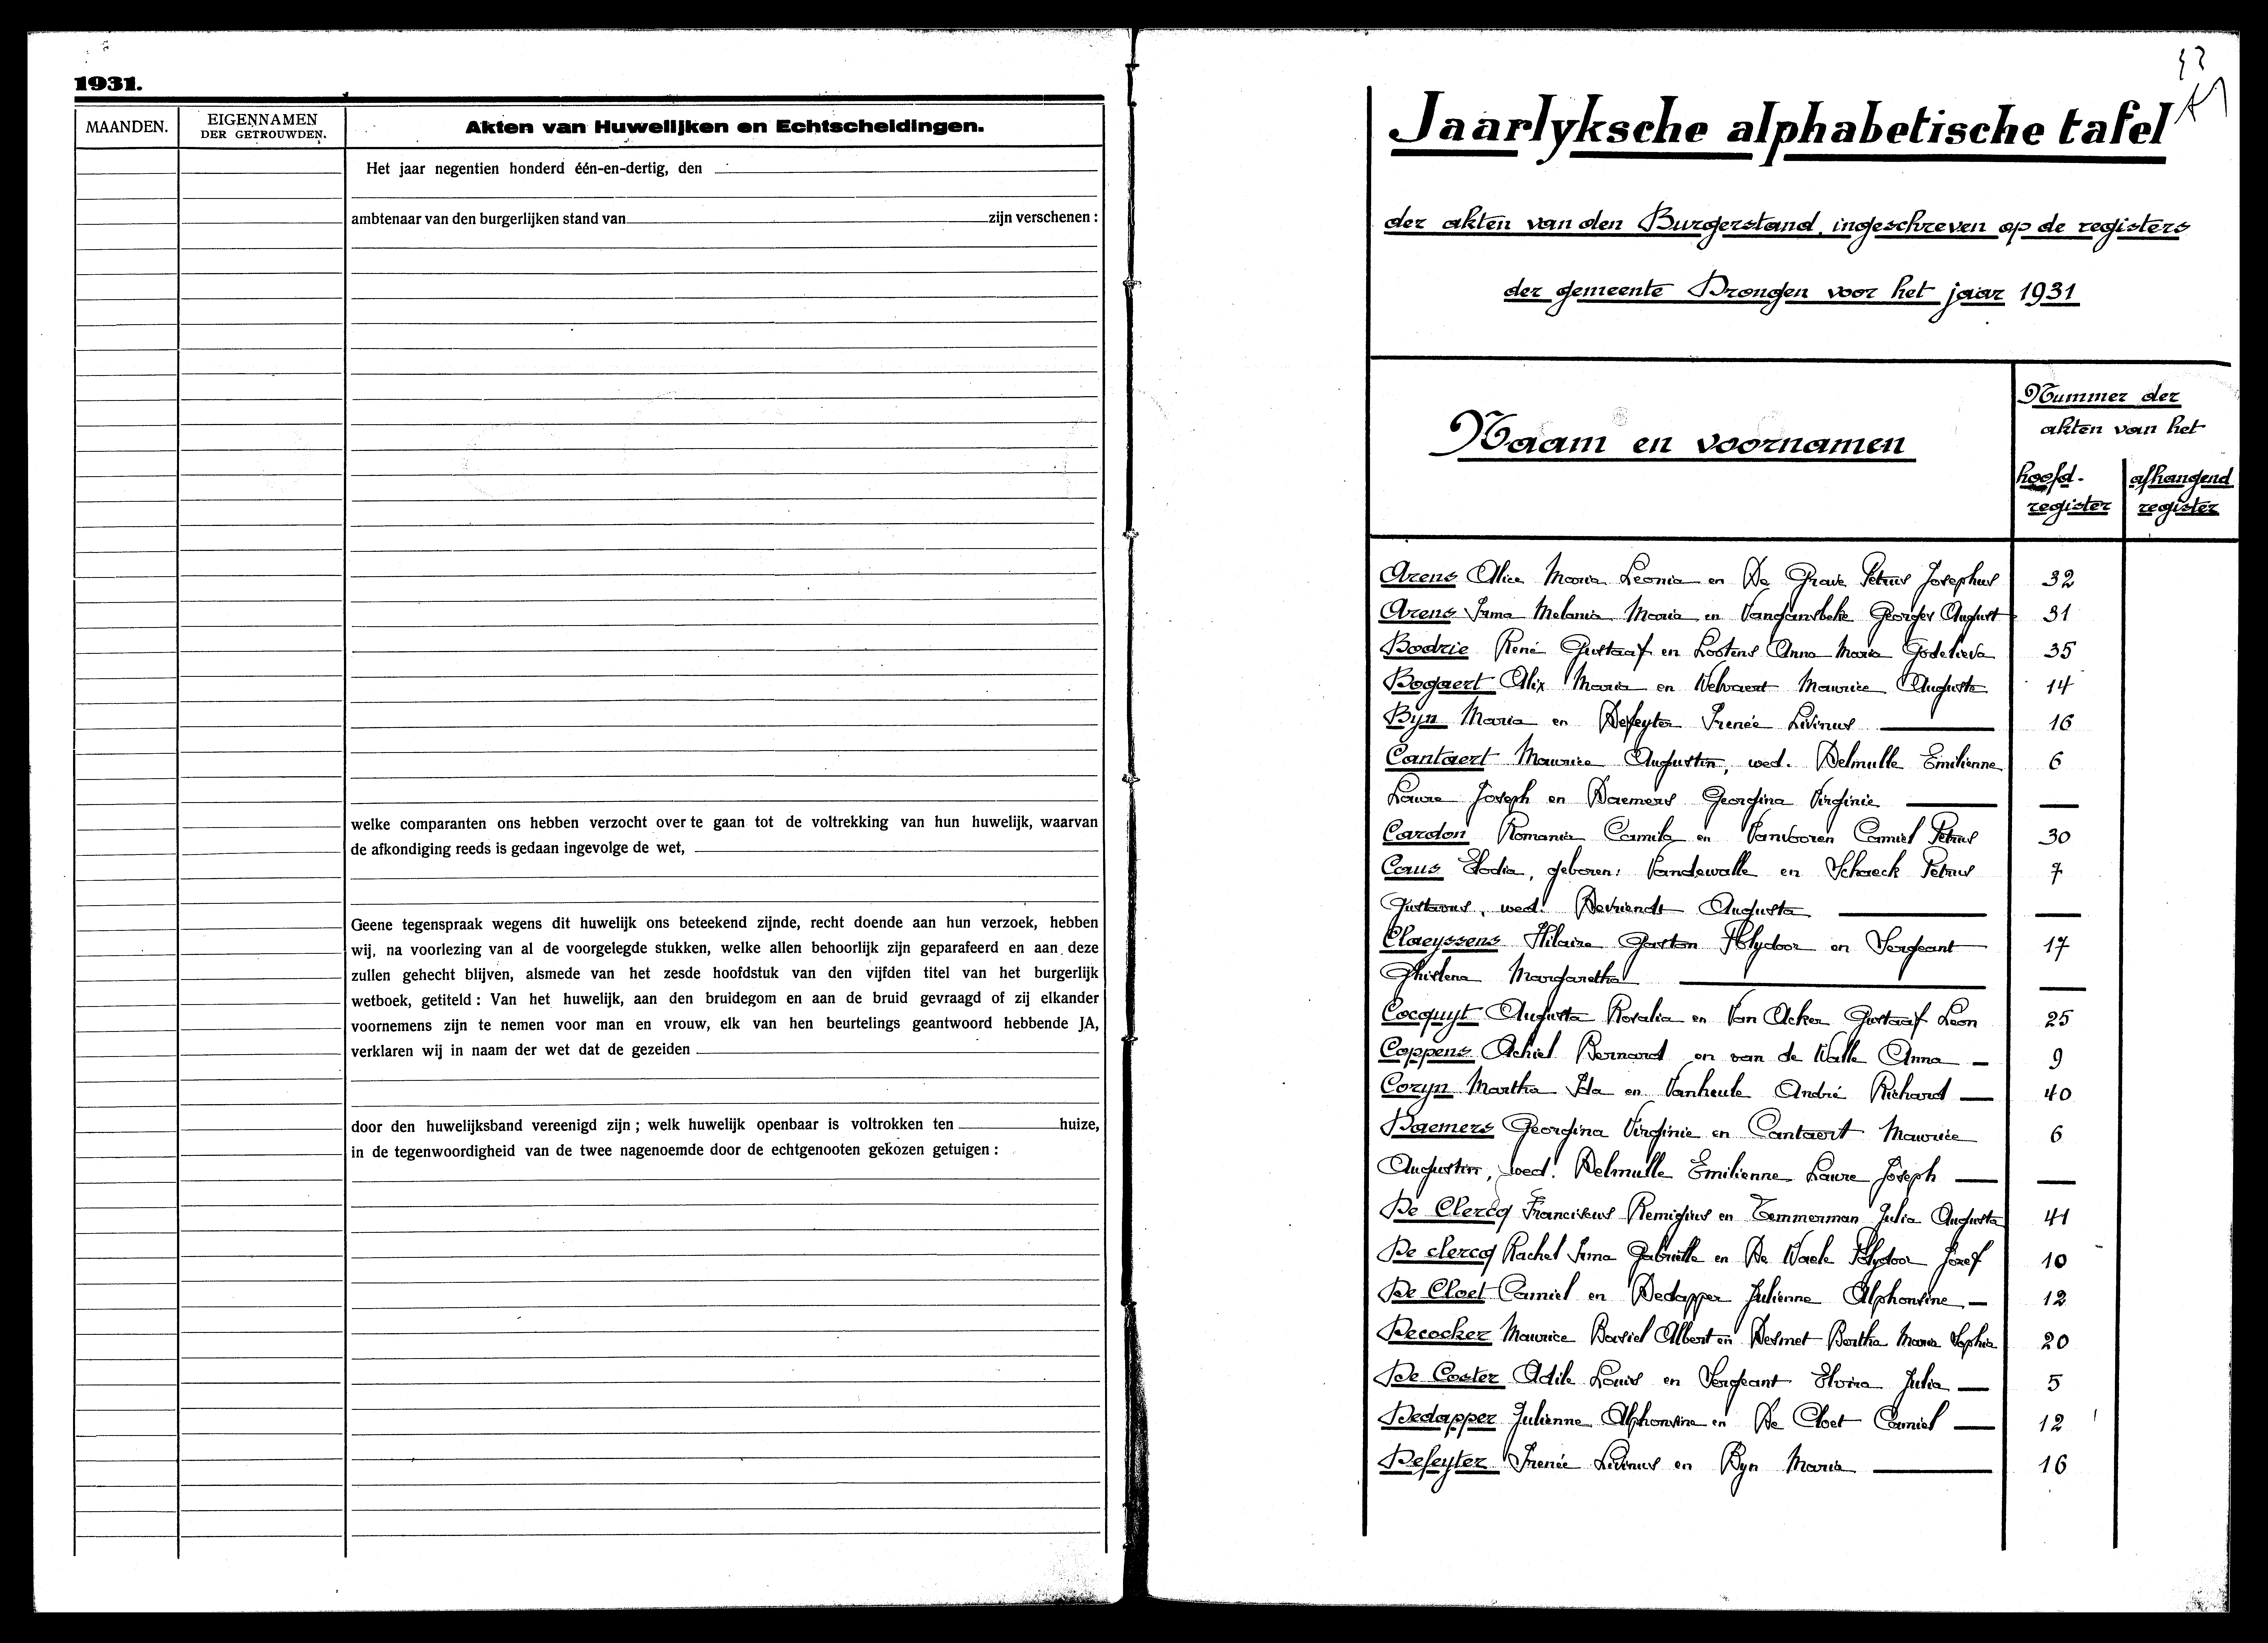 1931.
MAANDEN.
EIGENNAMEN
DER GETROUWDEN.
Akten van Huwelijken en Echtscheidingen.
Het jaar negentien honderd één-en-dertig, den
ambtenaar van den burgerlijken stand van zijn verschenen :
welke comparanten ons hebben verzocht over te gaan tot de voltrekking van hun huwelijk, waarvan
de afkondiging reeds is gedaan ingevolge de wet,
Geene tegenspraak wegens dit huwelijk ons beteekend zijnde, recht doende aan hun verzoek, hebben
wij, na voorlezing van al de voorgelegde stukken, welke allen behoorlijk zijn geparafeerd en aan deze
zullen gehecht blijven, alsmede van het zesde hoofdstuk van den vijfden titel van het burgerlijk
wetboek, getiteld : Van het huwelijk, aan den bruidegom en aan de bruid gevraagd of zij elkander
voornemens zijn te nemen voor man en vrouw, elk van hen beurtelings geantwoord hebbende JA,
verklaren wij in naam der wet dat de gezeiden
door den huwelijksband vereenigd zijn ; welk huwelijk openbaar is voltrokken ten huize,
in de tegenwoordigheid van de twee nagenoemde door de echtgenooten gekozen getuigen :
Jaarlyksche alphabetische tafel
der akten van den Burgerstand, ingeschreven op de registers
der gemeente Drongen voor het jaar 1931
Naam en voornamen
Nummer der
akten van het
hoofd-
register
afhangend
register
Arens Alice Maria Leonia en De Grave Petrus Josephus 32
Arens Irma Melania Maria en Vangansbeke Georges August 31
Bodrie René Gustaaf en Lootens Anna Maria Godelieva 35
Bogaert Alix Maria en Welvaert Maurice Auguste 14
Byn Maria en Defeyter Irenée Livinus 16
Cantaert Maurice Augustin, wed. Delmulle Emilienne 6
Laure Joseph en Daemers Georgina Virginie —
Cardon Romania Camila en Vanbooren Camiel Petrus 30
Caus Elodia, geboren: Vandewalle en Schaeck Petrus 7
Gustavus, wed. Devriendt Augusta —
Claeyssens Hilaire Gaston Polydoor en Sergeant 17
Ghislena Margaretha —
Cocquyt Augusta Rosalia en Van Acker Gustaaf Leon 25
Coppens Achiel Bernard en van de Walle Anna — 9
Coryn Martha Ida en Vanheule André Richard — 40
Daemers Georgina Virginie en Cantaert Maurice 6
Augustin, wed. Delmulle Emilienne Laure Joseph —
De Clercq Franciscus Remigius en Temmerman Julia Augusta 41
De clercq Rachel Irma Gabrielle en De Waele Polydoor Jozef 10
De Cloet Camiel en Dedapper Julienne Alphonsine — 12
Decocker Maurice Basiel Albert en Desmet Bertha Maria Sophia 20
De Coster Odile Louis en Sergeant Elvira Julia — 5
Dedapper Julienne Alphonsine en De Cloet Camiel — 12
Defeyter Irenée Livinus en Byn Maria 16